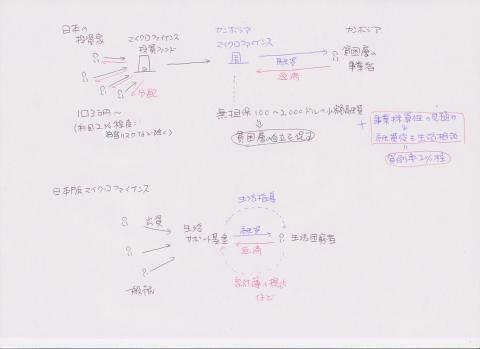 日本の
投資家
マイクロファイナンス
投資ファンド
カンボジア
マイクロファイナンス
カンボジア
貧困層の
事業者
融資
返済
分配
1口3万円〜
(利回り2%程度:
無担保100〜2,000ドルの小額融資
貧困層の自立を促す
+
事業採算性の見極め
融資後も生活相談
貸倒率2%程
日本版マイクロファイナンス
出資
一般市民
生活
サポート基金
生活指導
融資
返済
生活困窮者
家計簿の提出
など